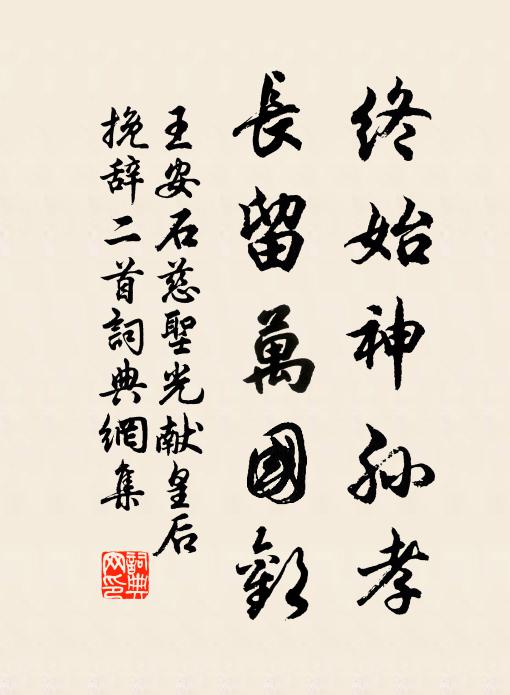 终始神孫孝
長留萬國歡
王安石慈聖光献皇后
挽辞二首詞典網集
詞典網印